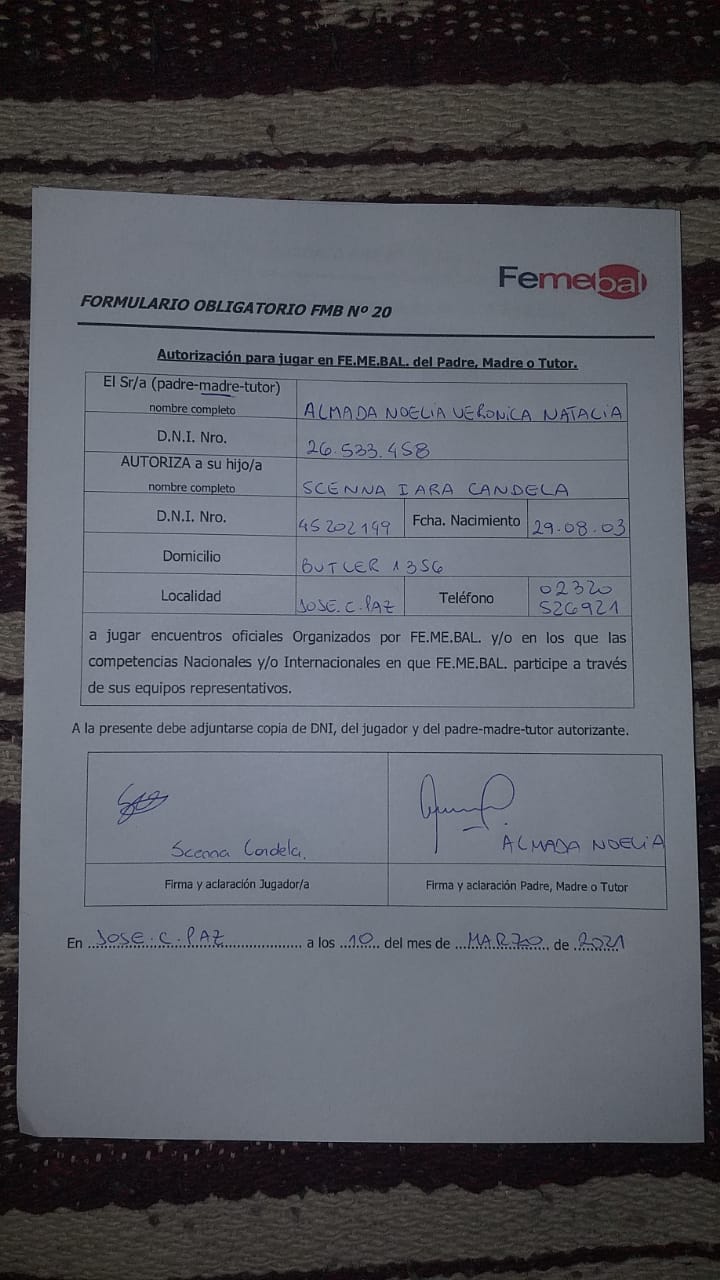 Femebal
FORMULARIO OBLIGATORIO FMB Nº 20
Autorización para jugar en FE.ME.BAL. del Padre, Madre o Tutor.
El Sr/a (padre-madre-tutor)
nombre completo
ALMADA NOELIA VERONICA NATALIA
D.N.I. Nro.
26.533.458
AUTORIZA a su hijo/a
nombre completo
SCENNA IARA CANDELA
D.N.I. Nro.
45202199
Fcha. Nacimiento
29.08.03
Domicilio
BUTLER 1356
Localidad
JOSE.C.PAZ
Teléfono
02320
526921
a jugar encuentros oficiales Organizados por FE.ME.BAL. y/o en los que las
competencias Nacionales y/o Internacionales en que FE.ME.BAL. participe a través
de sus equipos representativos.
A la presente debe adjuntarse copia de DNI, del jugador y del padre-madre-tutor autorizante.
Scenna Candela.
ALMADA NOELIA
Firma y aclaración Jugador/a
Firma y aclaración Padre, Madre o Tutor
En JOSE.C.PAZ a los 10 del mes de MARZO de 2021